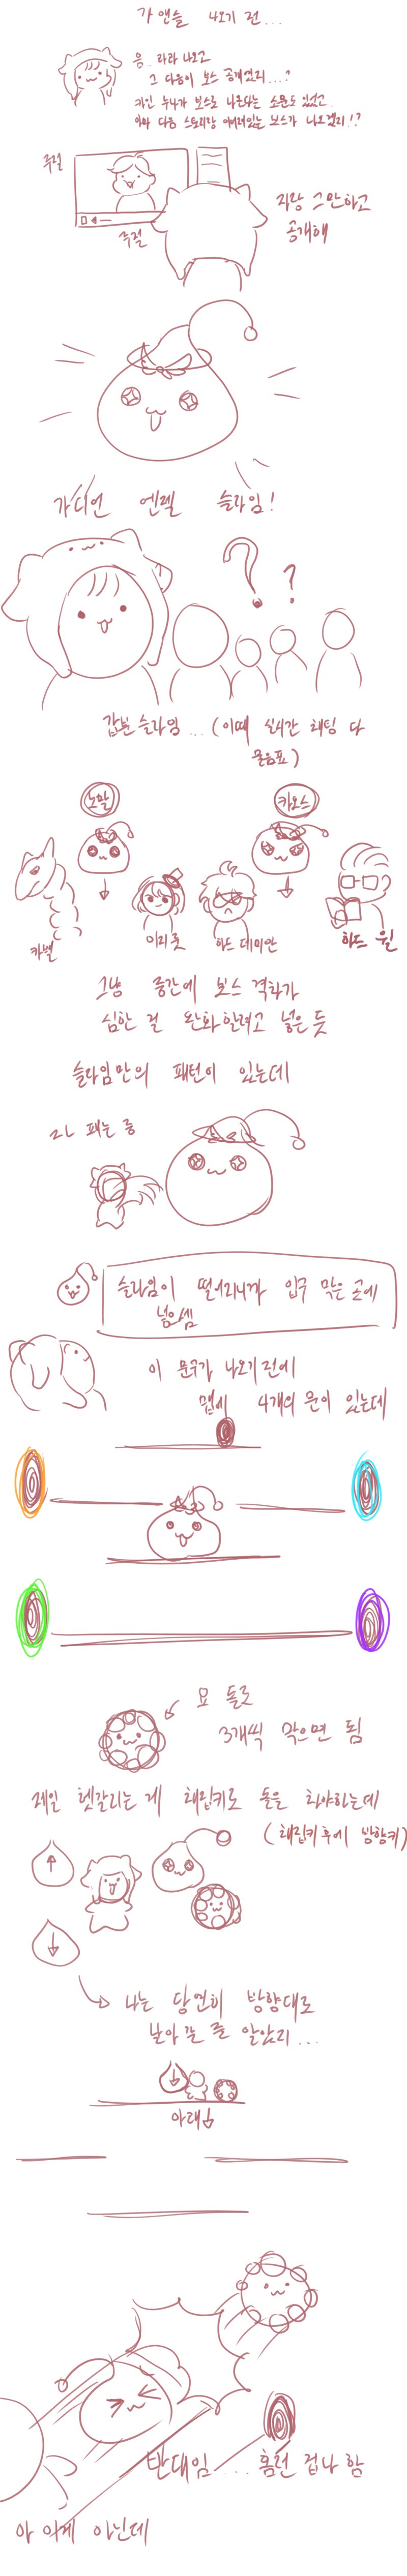 가엔슬 나오기 전...
음. 라라 나오고
그 다음이 보스 공개겠지...?
카인 누나가 보스로 나온다는 소문도 있었고
아마 다음 스토리랑 이어져있는 보스가 나오겠지!?
주절
주절
지랑 그만하고
공개해
가디언 엔젤 슬라임!
? ?
갑분슬라임... (이때 실시간 채팅 다
물음표)
노말
카오스
카벨
이리윷
하드 데미안
하드 윌
그냥 중간에 보스 격차가
심한 걸 완화할려고 넣은 듯
슬라임만의 패턴이 있는데
그냥 패는 중
슬라임이 떨어지니까 입구 막은 곳에
넣으셈
이 문구가 나오기 전에
맵에 4개의 문이 있는데
요 돌로
3개씩 막으면 됨
제일 헷갈리는 게 채집키로 돌을 쳐야하는데
(채집키 후에 방향키)
나는 당연히 방향대로
날아가는 줄 알았지...
아래임
반대임... 홈런 겁나 함
아 이게 아닌데